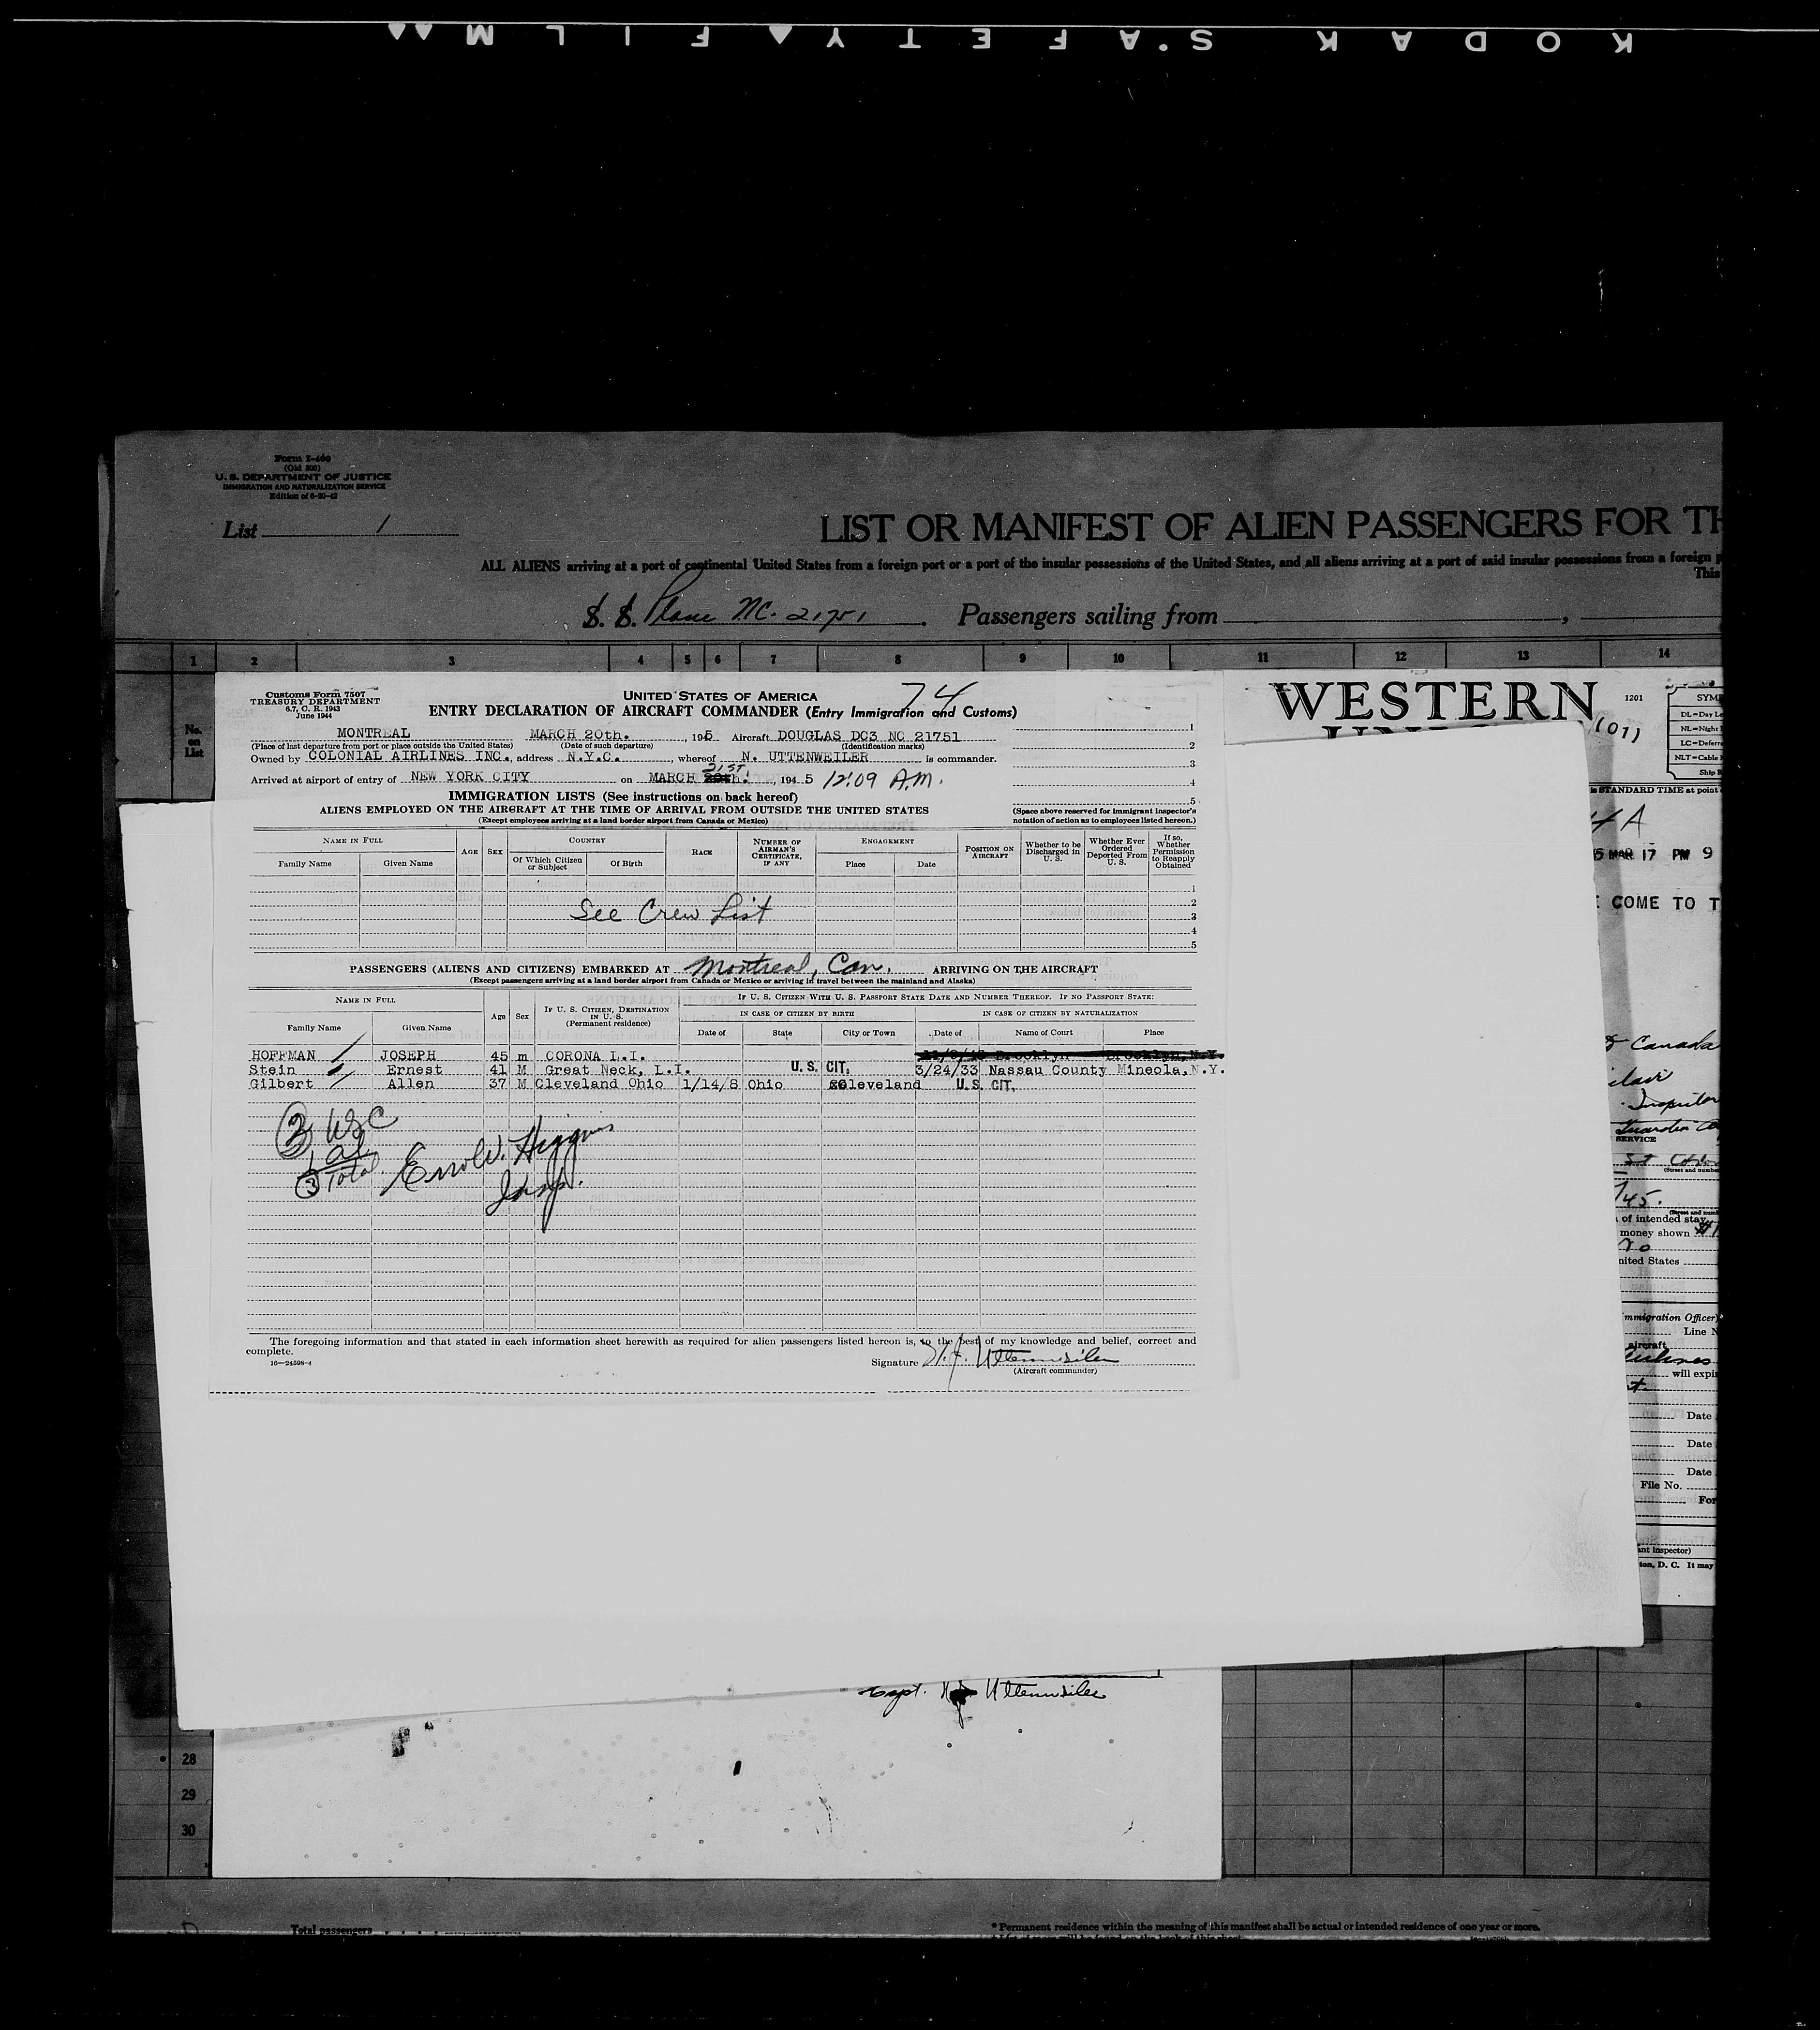 KODAK SAFETY FILM
Form I-400
(Old 500)
U. S. DEPARTMENT OF JUSTICE
IMMIGRATION AND NATURALIZATION SERVICE
Edition of 6-20-42
List 1
LIST OR MANIFEST OF ALIEN PASSENGERS FOR TH
ALL ALIENS arriving at a port of continental United States from a foreign port or a port of the insular possessions of the United States, and all aliens arriving at a port of said insular possessions from a foreign p
This
S. S. Plane NC. 21751 . Passengers sailing from ,
1 2 3 4 5 6 7 8 9 10 11 12 13 14
No. on List
Customs Form 7507
TREASURY DEPARTMENT
6.7, C. R. 1943
June 1944
UNITED STATES OF AMERICA 74
ENTRY DECLARATION OF AIRCRAFT COMMANDER (Entry Immigration and Customs)
MONTREAL MARCH 20th. , 195 Aircraft DOUGLAS DC3 NC 21751
(Place of last departure from port or place outside the United States) (Date of such departure) (Identification marks)
Owned by COLONIAL AIRLINES INC., address N.Y.C. , whereof N. UTTENWEILER is commander.
Arrived at airport of entry of NEW YORK CITY on MARCH 21ST , 194 5 12:09 A.M.
1
2
3
4
5
IMMIGRATION LISTS (See instructions on back hereof)
ALIENS EMPLOYED ON THE AIRCRAFT AT THE TIME OF ARRIVAL FROM OUTSIDE THE UNITED STATES
(Except employees arriving at a land border airport from Canada or Mexico)
(Space above reserved for immigrant inspector's notation of action as to employees listed hereon.)
NAME IN FULL AGE SEX COUNTRY RACE NUMBER OF AIRMAN'S CERTIFICATE, IF ANY ENGAGEMENT POSITION ON AIRCRAFT Whether to be Discharged in U. S. Whether Ever Ordered Deported From U. S. If so, Whether Permission to Reapply Obtained
Family Name Given Name Of Which Citizen or Subject Of Birth Place Date
1
2
See Crew List 3
4
5
PASSENGERS (ALIENS AND CITIZENS) EMBARKED AT Montreal, Can. ARRIVING ON THE AIRCRAFT
(Except passengers arriving at a land border airport from Canada or Mexico or arriving in travel between the mainland and Alaska)
NAME IN FULL Age Sex IF U. S. CITIZEN, DESTINATION IN U. S. (Permanent residence) IF U. S. CITIZEN WITH U. S. PASSPORT STATE DATE AND NUMBER THEREOF. IF NO PASSPORT STATE:
IN CASE OF CITIZEN BY BIRTH IN CASE OF CITIZEN BY NATURALIZATION
Family Name Given Name Date of State City or Town Date of Name of Court Place
HOFFMAN JOSEPH 45 m CORONA L.I. Brooklyn Brooklyn,N.Y.
Stein Ernest 41 M Great Neck, L.I. U. S. CIT. 3/24/33 Nassau County Mineola,N.Y.
Gilbert Allen 37 M Cleveland Ohio 1/14/8 Ohio Cleveland U. S. CIT.
2 USC
1 al
3 Total.
Errol W. Higgins
Insp.
The foregoing information and that stated in each information sheet herewith as required for alien passengers listed hereon is, to the best of my knowledge and belief, correct and
complete.
16—24598-4
Signature N.J. Uttenweiler
(Aircraft commander)
WESTERN
UNION
1201
(07)
SYM
DL=Day Le
NL=Night
LC=Deferre
NLT=Cable
Ship R
is STANDARD TIME at point
4 A
5 MAR 17 PM 9
E COME TO T
Canada
Inspector
SERVICE
(Street and number
/45.
of intended stay
money shown
no
nited States
mmigration Officer)
Line N
aircraft
will expi
Date
Date
Date
File No.
For
ant inspector)
ton, D. C. It may
Capt. N.J. Uttenweiler
28
29
30
Total passengers
* Permanent residence within the meaning of this manifest shall be actual or intended residence of one year or more.